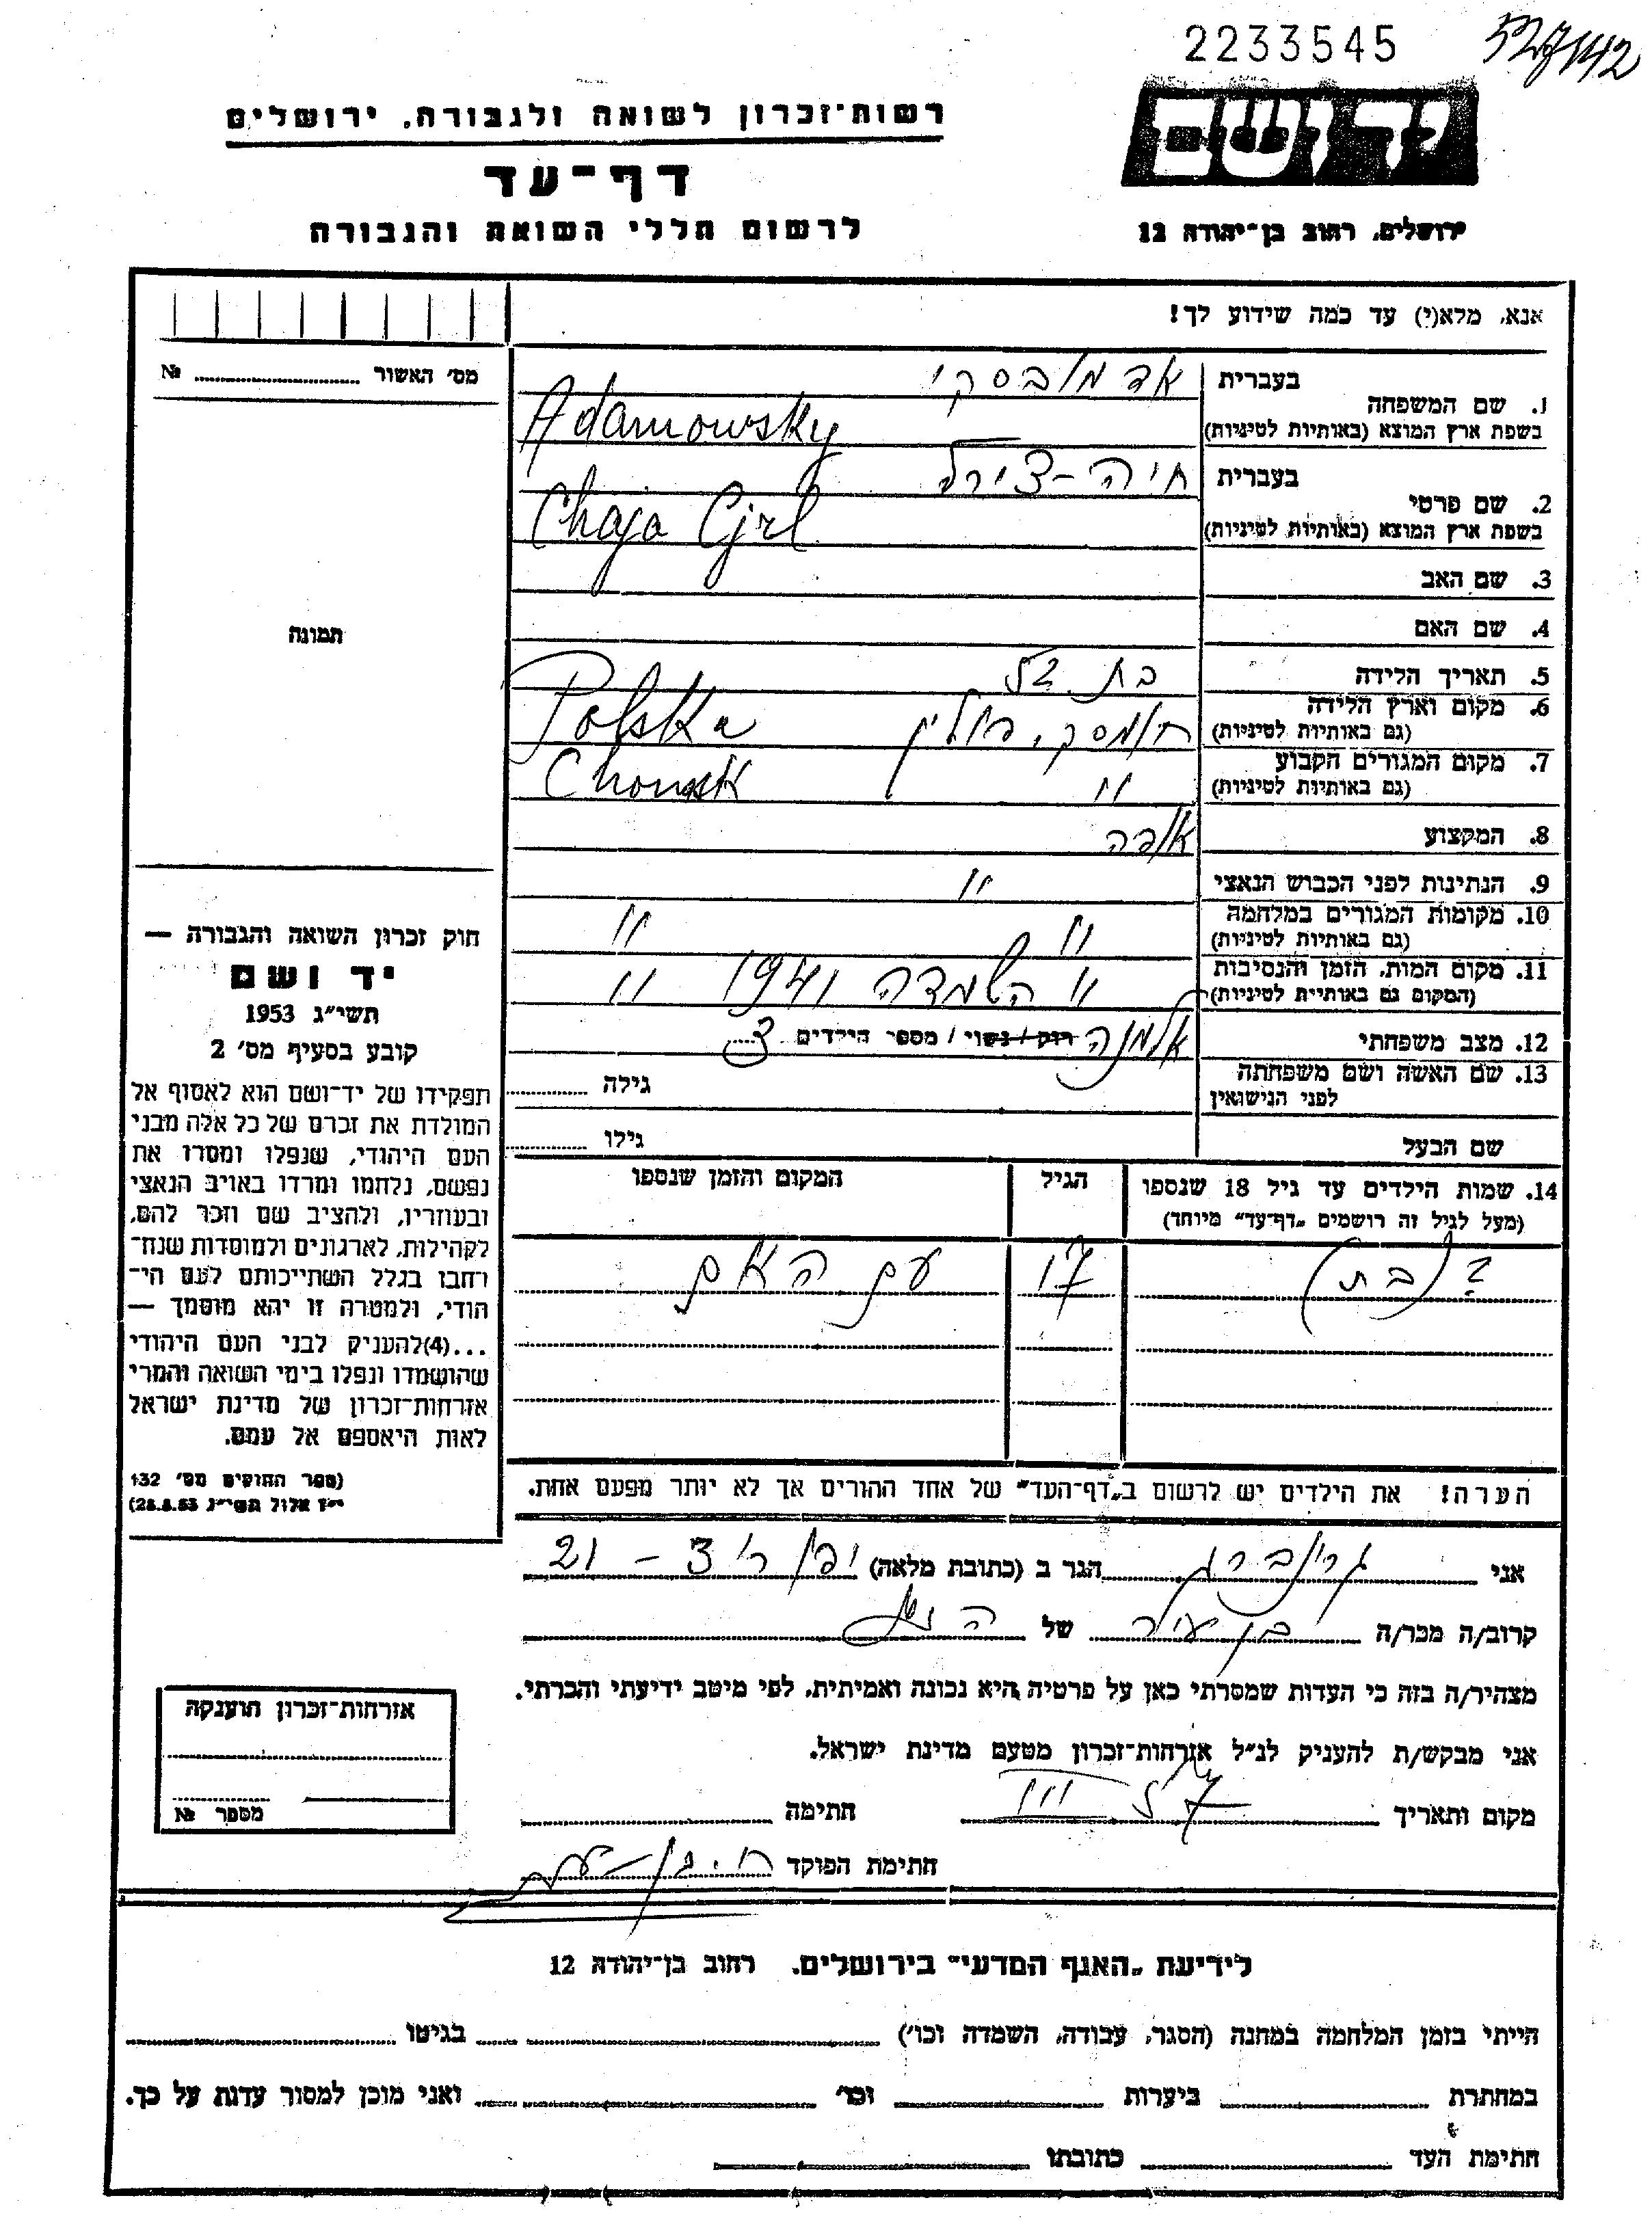 2233545
527142
יד ושם
ירושלים, רחוב בן־יהודה 12
רשות־זכרון לשואה ולגבורה, ירושלים
דף־עד
לרשום חללי השואה והגבורה
אנא, מלא(י) עד כמה שידוע לך!
מס׳ האשור № ........
תמונה
בעברית אדמובסקי
1. שם המשפחה
בשפת ארץ המוצא (באותיות לטיניות) Adamowsky
בעברית חיה-צירל
2. שם פרטי
בשפת ארץ המוצא (באותיות לטיניות) Chaja Cjrl
3. שם האב
4. שם האם
5. תאריך הלידה בת
6. מקום וארץ הלידה חומסק, פולין Polska
(גם באותיות לטיניות)
7. מקום המגורים הקבוע " Chomsk
(גם באותיות לטיניות)
8. המקצוע אופה
9. הנתינות לפני הכבוש הנאצי "
10. מקומות המגורים במלחמה " "
(גם באותיות לטיניות)
11. מקום המות, הזמן והנסיבות " השמדה 1941 "
(המקום גם באותיות לטיניות)
12. מצב משפחתי אלמנה רווק / נשוי / מספר הילדים 3
13. שם האשה ושם משפחתה גילה ........
לפני הנישואין
שם הבעל גילו ........
14. שמות הילדים עד גיל 18 שנספו הגיל המקום והזמן שנספו
(מעל לגיל זה רושמים „דף־עד״ מיוחד)
? (בת) 17 עם האם
הערה! את הילדים יש לרשום ב„דף־העד״ של אחד ההורים אך לא יותר מפעם אחת.
חוק זכרון השואה והגבורה —
יד ושם
תשי״ג 1953
קובע בסעיף מס׳ 2
תפקידו של יד־ושם הוא לאסוף אל
המולדת את זכרם של כל אלה מבני
העם היהודי, שנפלו ומסרו את
נפשם, נלחמו ומרדו באויב הנאצי
ובעוזריו, ולהציב שם וזכר להם,
לקהילות, לארגונים ולמוסדות שנח־
רחבו בגלל השתייכותם לעם הי־
הודי, ולמטרה זו יהא מוסמך —
...(4)להעניק לבני העם היהודי
שהושמדו ונפלו בימי השואה והמרי
אזרחות־זכרון של מדינת ישראל
לאות היאספם אל עמם.
(ספר החוקים מס׳ 132
י״ז אלול תשי״ג 28.8.53)
אני גרינברג הגר ב (כתובת מלאה) 21 - 3
קרוב/ה מכר/ה בן עיר של
מצהיר/ה בזה כי העדות שמסרתי כאן על פרטיה היא נכונה ואמיתית, לפי מיטב ידיעתי והכרתי.
אני מבקש/ת להעניק לנ״ל אזרחות־זכרון מטעם מדינת ישראל.
מקום ותאריך חתימה ........
חתימת הפוקד
אזרחות־זכרון הוענקה
מספר №
לידיעת „האגף המדעי״ בירושלים, רחוב בן־יהודה 12
הייתי בזמן המלחמה במחנה (הסגר, עבודה, השמדה וכו׳) ........ בגיטו ........
במחתרת ........ ביערות ........ וכו׳ ........ ואני מוכן למסור עדות על כך.
חתימת העד ........ כתובתו ........